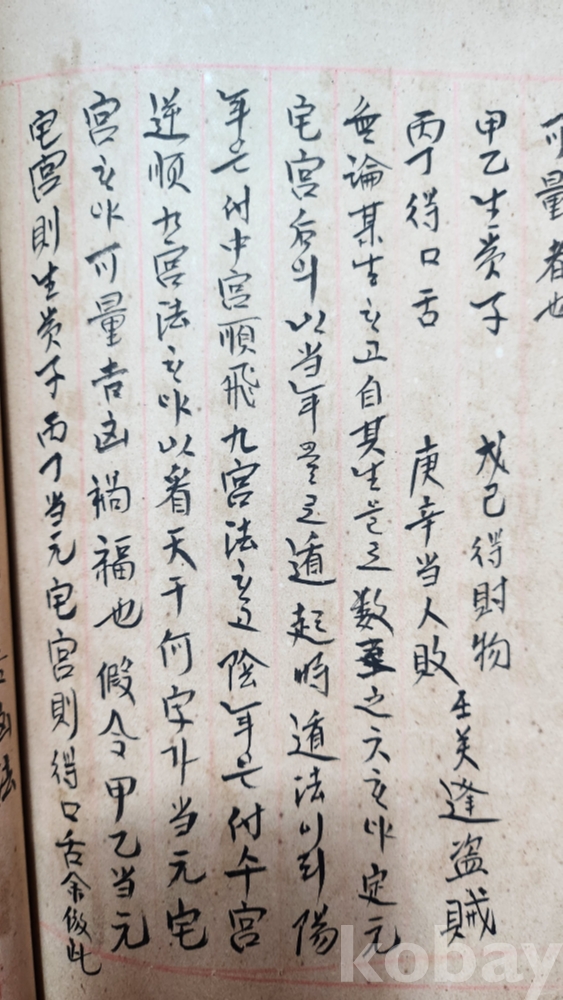 可量者也
甲乙生贵子 戊己得財物
丙丁得口舌 庚辛当人敗 壬癸逢盗賊
無論某生하고 自其生으로 数 之六하야 定元
宅宮后의 以当年으로 遁起時遁法이되 陽
年은 付中宮順飛九宮法하고 陰年은 付 宮
逆順九宮法하야 以看天干何字가 当元宅
宮하야 可量吉凶禍福也 假令甲乙当元
宅宮則生贵子丙丁当元宅宮則得口舌余倣此
kobay